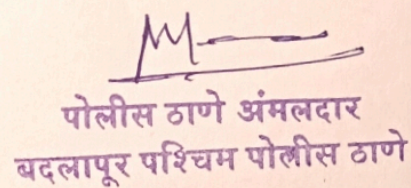 पोलीस ठाणे अंमलदार
बदलापूर पश्चिम पोलीस ठाणे